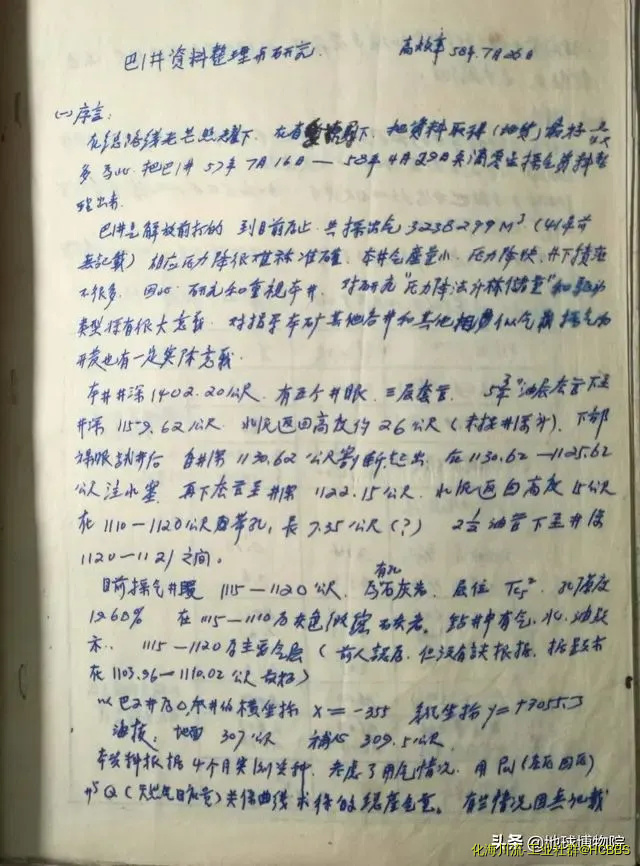 巴1井资料整理与研究
高效率 58年7月26日
(一) 序言:
在总路线光芒照耀下,在省 下,把资料取得
多 把巴1井57年7月16日—58年4月29日
整理出来
巴1井是解放前打的 到目前为止 共采出气3238299M³(41年前
无记载)相应压力降很 准确,本井气产量小,压力降快,井下积液
不很多,因此 研究和重视本井,对研究"压力降法计算储量"和驱动
类型将有很大意义,对指导本矿其他各井和其他相似气藏
开发也有一定实际意义.
本井井深1402.20公尺,有五个井眼,三层套管,
井深1159.62公尺 水泥返回高度约26公尺( ),下部
井后 自井深1130.62公尺 在1130.62—1125.62
公尺注水塞 再下套管至井深1122.15公尺,水泥返回高度15公尺
在1110—1120公尺为带孔,长7.35公尺(?) 2½油管下至井深
1120—1121之间。
目前采气井段 1115—1120公尺,为有孔石灰岩,层位 孔隙度
19.60% 在1115—1110为灰色致密石灰岩,钻井中有气、水、油显
示. 1115—1120为主要气层(前人认为,但没有谈根据,
在1103.96—1110.02公尺 )
以巴2井为0,本井的横坐标 x=-355 纵坐标 y=+7055.3
海拔: 地面307公尺 补心309.5公尺,
本资料根据4个月实测资料,考虑了用气情况,用
与Q(天然气日产量)关系曲线求得的 有些情况因无记载
头条@地球博物院
化海川流-工业社群@HCBBS